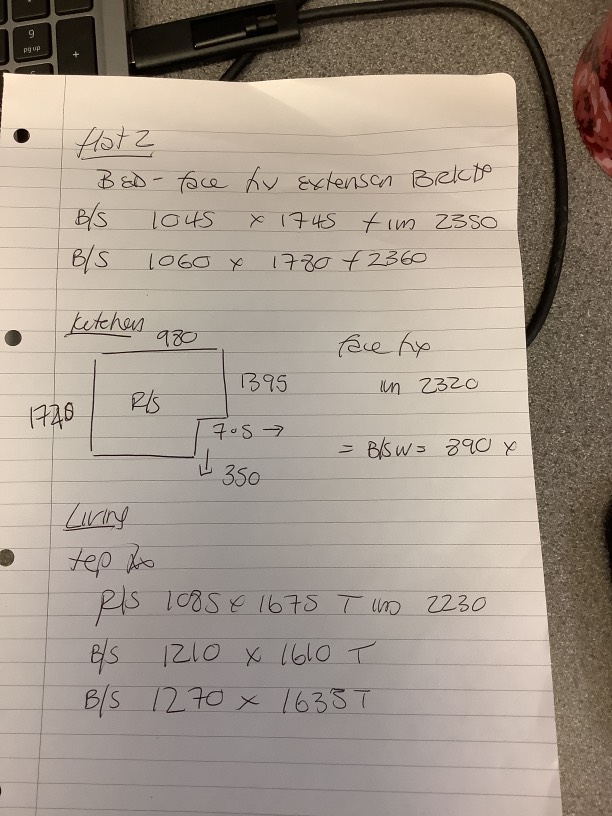 9
pg up
+
flat 2
BED - face fix extension BRKTS
B/S 1045 x 1745 f im 2350
B/S 1060 x 1780 f 2360
Kitchen
980
face fix
1395
im 2320
R/S
705 →
= B/S W = 890 x
350
Living
top fix
R/S 1085 x 1675 T im 2230
B/S 1210 x 1610 T
B/S 1270 x 1635 T